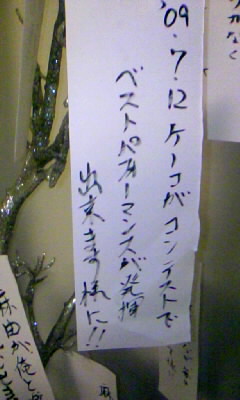 '09.7.12 ケーコがコンテストで
ベストパフォーマンスが発揮
出来ます様に!!